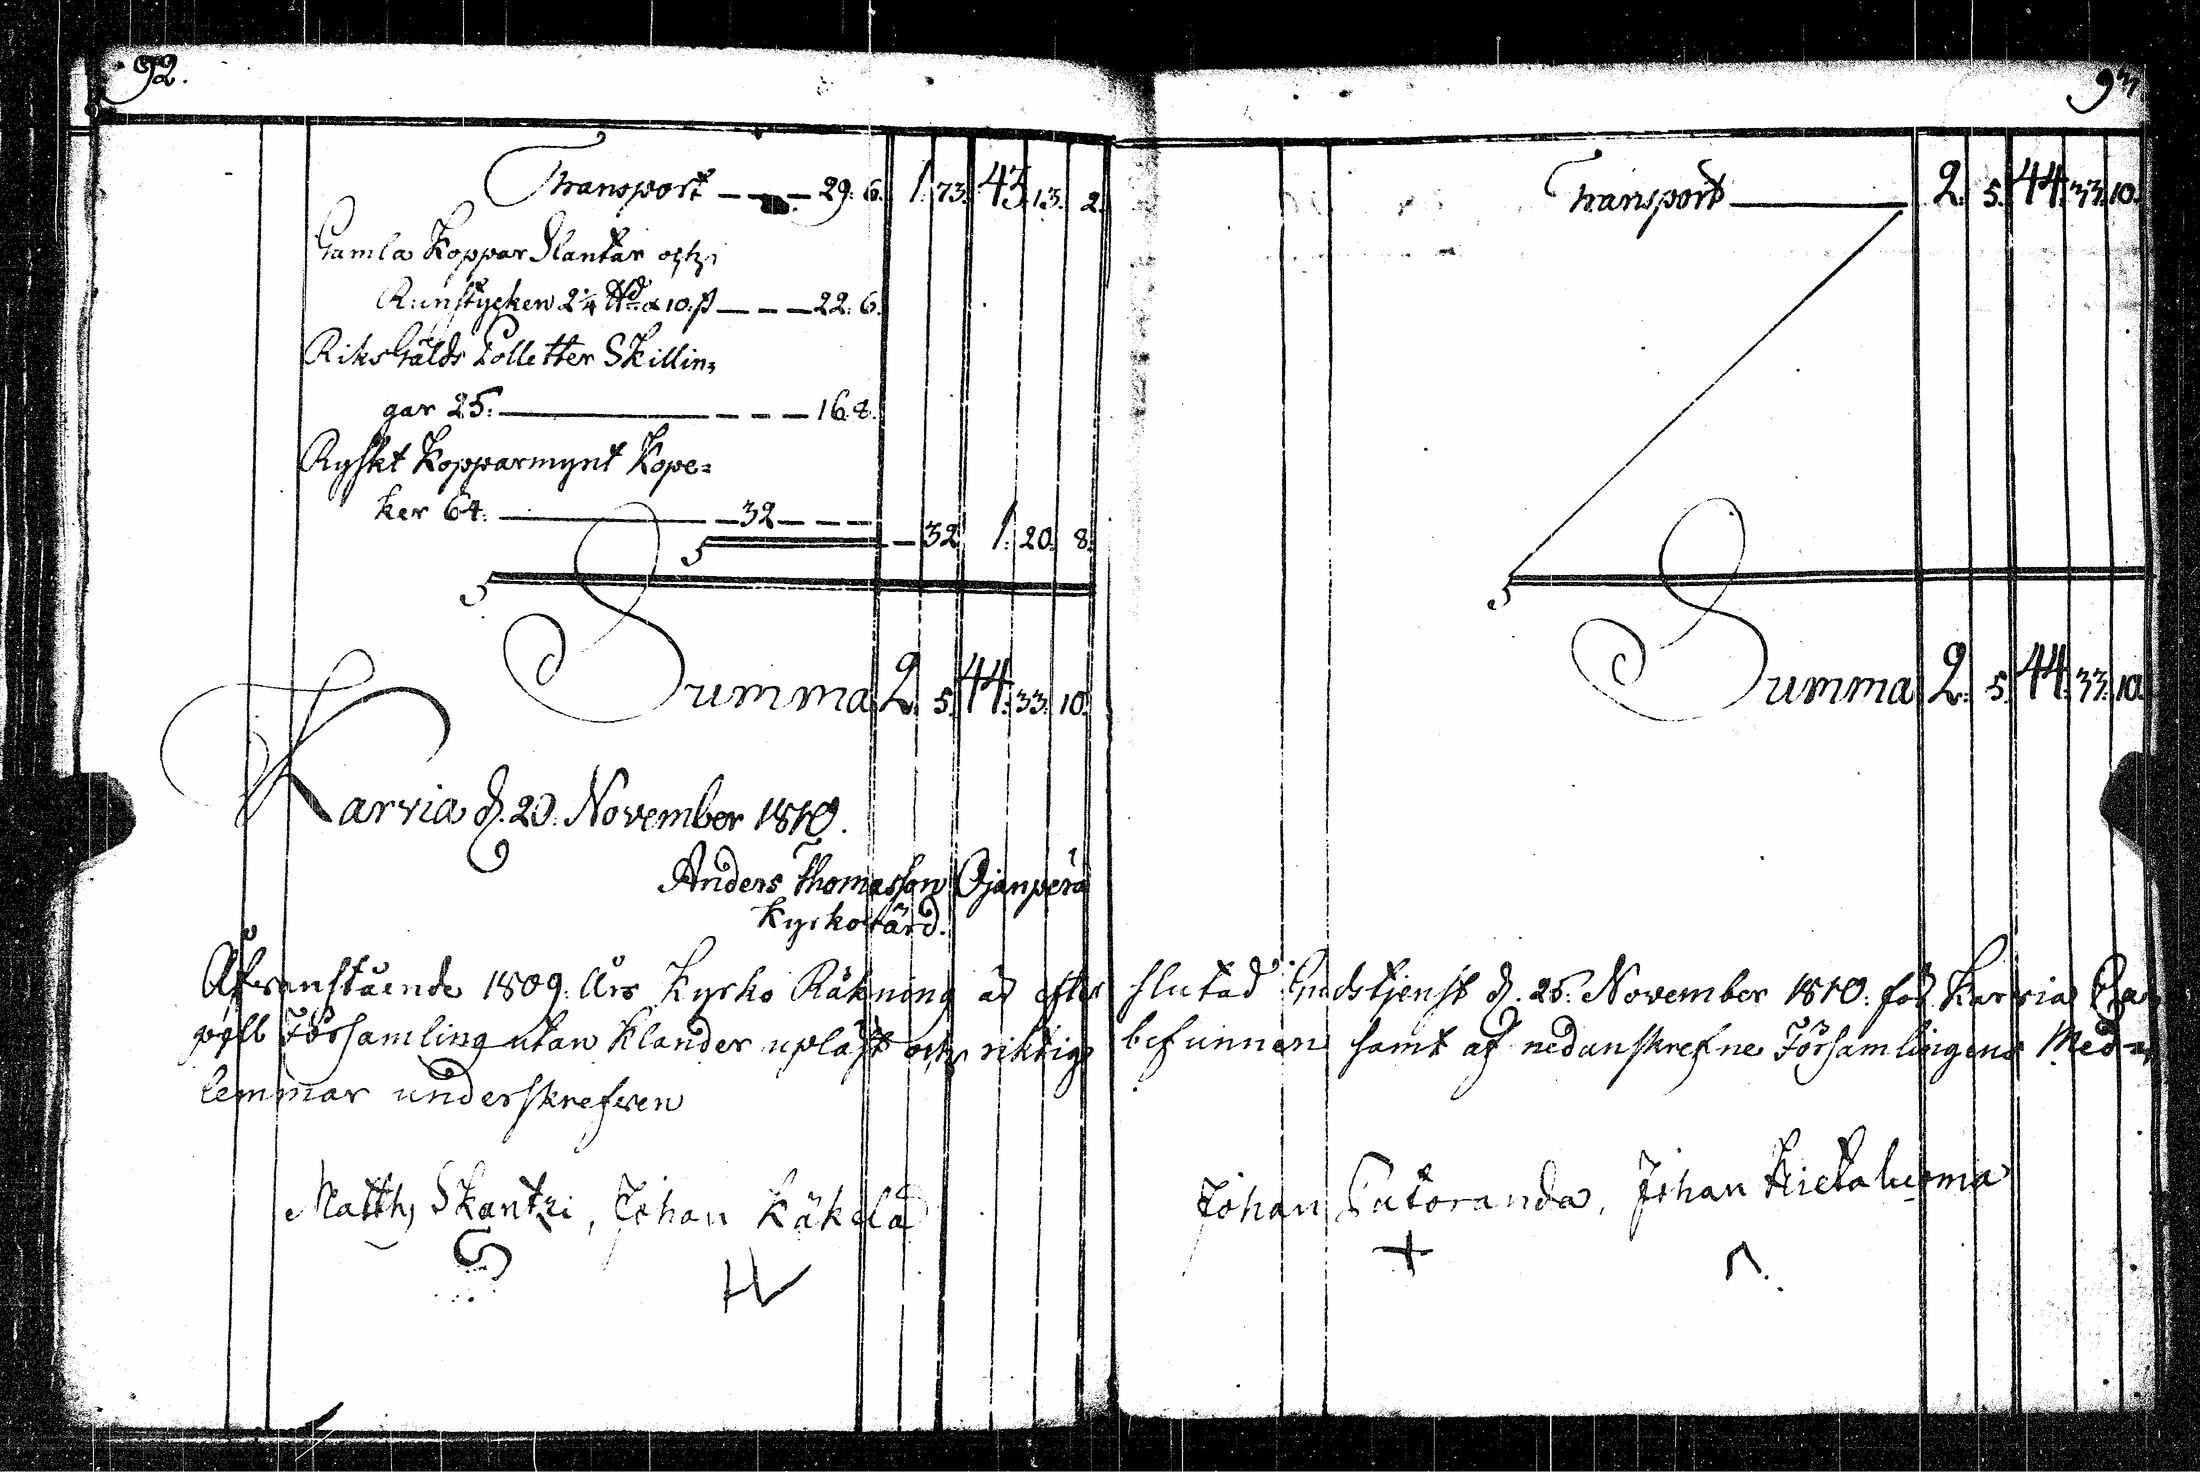 92.
Transport — — — 29: 6. 1. 73. 43. 13. 2.
Gamla Koppar Slantar och
Runstycken 2¼ a 10. ß — — — 22: 6.
RiksGälds Polletter Skillin=
gar 25. — — — 16. 8.
Ryskt Kopparmynt Kope=
ker 64. — 32 — — — — 32. 1. 20. 8.
Summa 2. 5. 44. 33. 10.
Karvia d. 20. November 1810.
Anders Thomasson Ojanperä
Kyrkovärd.
93
Transport — 2. 5. 44. 33. 10.
Summa 2. 5. 44. 33. 10.
Åfvanstående 1809. Års Kyrko Räkning är efter slutad Gudstjenst d. 25. November 1810. för Karvia Ca=
pell Församling utan klander upläst och riktig befunnen samt af nedanskrefne Församlingens Med=
lemmar underskrefven
Matth, Skantzi, Johan Käkelä Johan Luboranda, Johan Hietaluoma